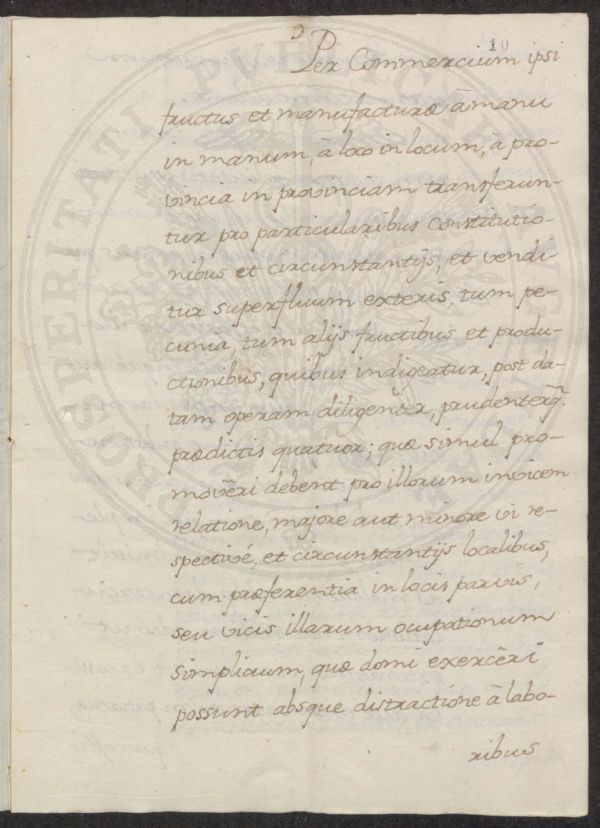 10
Per Commercium ipsi
fructus et manufacturæ â manu
in manum, â loco in locum, â pro-
vincia in provinciam transferun-
tur pro particularibus Constitutio-
nibus et circunstantijs, et vendi-
tur superfluum exteris, tum pe-
cunia, tum alijs fructibus et produ-
ctionibus, quibus indigeatur, post da-
tam operam diligentèr, prudentèrq̃.
prædictis quatuor; quæ simul pro-
movêri debènt pro illorum invicem
relatione, majore aut minore vi re-
spectivé, et circunstantijs localibus,
cum præferentia in locis parvis,
seu vicis illarum ocupationum
simplicium, quæ domi exercêri
possunt absque distractione â labo-
ribus
PROSPERITATI PUBLICAE